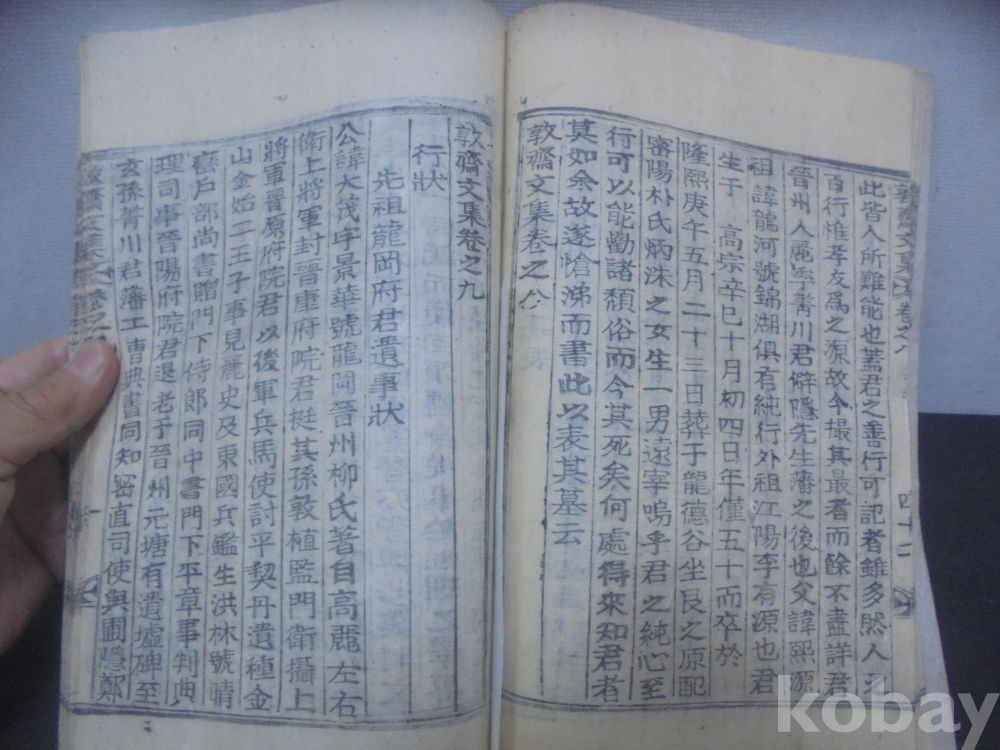 此皆人所難能也蓋君之善行可記者雖多然人
百行惟孝友爲之源故今撮其最著而餘不盡詳君
晉州人麗季菁川君僻隱先生藩之後也父諱熙源
祖諱龍河號錦湖俱有純行外祖江陽李有源也君
生于 高宗辛巳十月初四日年僅五十而卒於
隆熙庚午五月二十三日葬于龍德谷坐艮之原配
密陽朴氏炳洙之女生一男遠宰嗚乎君之純心至
行可以能勸諸頹俗而今其死矣何處得來知君者
莫如余故遂愴涕而書此以表其墓云
敦齋文集卷之八
敦齋文集卷之九
行狀
先祖龍岡府君遺事狀
公諱大茂字景華號龍岡晉州柳氏著自高麗左右
衛上將軍封晉康府院君挺其孫敦植監門衛攝上
將軍晉原府院君以後軍兵馬使討平契丹遺種金
山金始二王子事見麗史及東國兵鑑生洪林號晴
巒戶部尚書贈門下侍郎同中書門下平章事判典
理司事晉陽府院君退老于晉州元塘有遺墟碑至
玄孫菁川君藩工曹典書同知密直司使與圃隱鄭
敦齋文集
卷之八
四十二
kobay